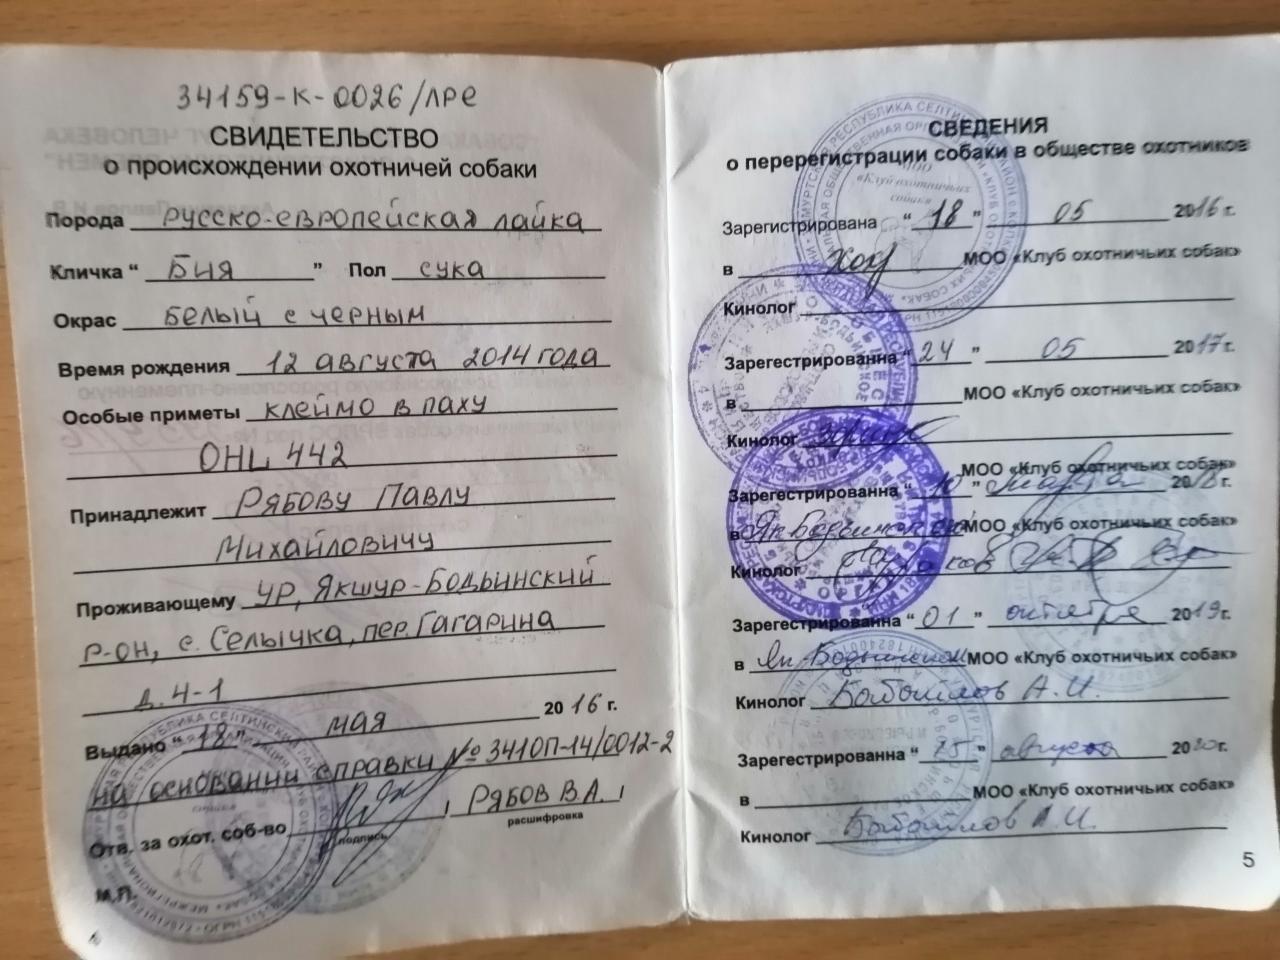 34159-К-0026/ЛРЕ
СВИДЕТЕЛЬСТВО
о происхождении охотничей собаки
Порода русско-европейская лайка
Кличка “ Бия ” Пол сука
Окрас белый с черным
Время рождения 12 августа 2014 года
Особые приметы клеймо в паху
ОНЦ 442
Принадлежит Рябову Павлу
Михайловичу
Проживающему УР, Якшур-Бодьинский
р-он, с. Селычка, пер. Гагарина
д. 4-1
Выдано “ 18 ” мая 2016 г.
на основании справки № 3410П-14/0012-2
Отв. за охот. соб-во Рябов В.А.
подпись расшифровка
М.П.
СВЕДЕНИЯ
о перерегистрации собаки в обществе охотников
Зарегистрирована “ 18 ” 05 2016 г.
в МОО «Клуб охотничьих собак»
Кинолог
Зарегестрированна “ 24 ” 05 2017 г.
в МОО «Клуб охотничьих собак»
Кинолог
МОО «Клуб охотничьих собак»
Зарегестрированна “ 10 ” марта 2018 г.
в МОО «Клуб охотничьих собак»
Кинолог
Зарегестрированна “ 01 ” октября 2019 г.
в Як-Бодьинском МОО «Клуб охотничьих собак»
Кинолог А.И.
Зарегестрированна “ ” августа 2020 г.
в МОО «Клуб охотничьих собак»
Кинолог А.И.
5